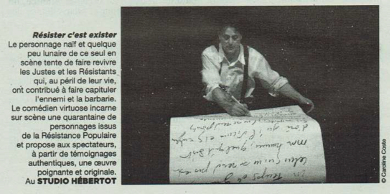 Résister c'est exister
Le personnage naïf et quelque
peu lunaire de ce seul en
scène tente de faire revivre
les Justes et les Résistants
qui, au péril de leur vie,
ont contribué à faire capituler
l'ennemi et la barbarie.
Le comédien virtuose incarne
sur scène une quarantaine de
personnages issus
de la Résistance Populaire
et propose aux spectateurs,
à partir de témoignages
authentiques, une œuvre
poignante et originale.
Au STUDIO HÉBERTOT
© Caroline Coste